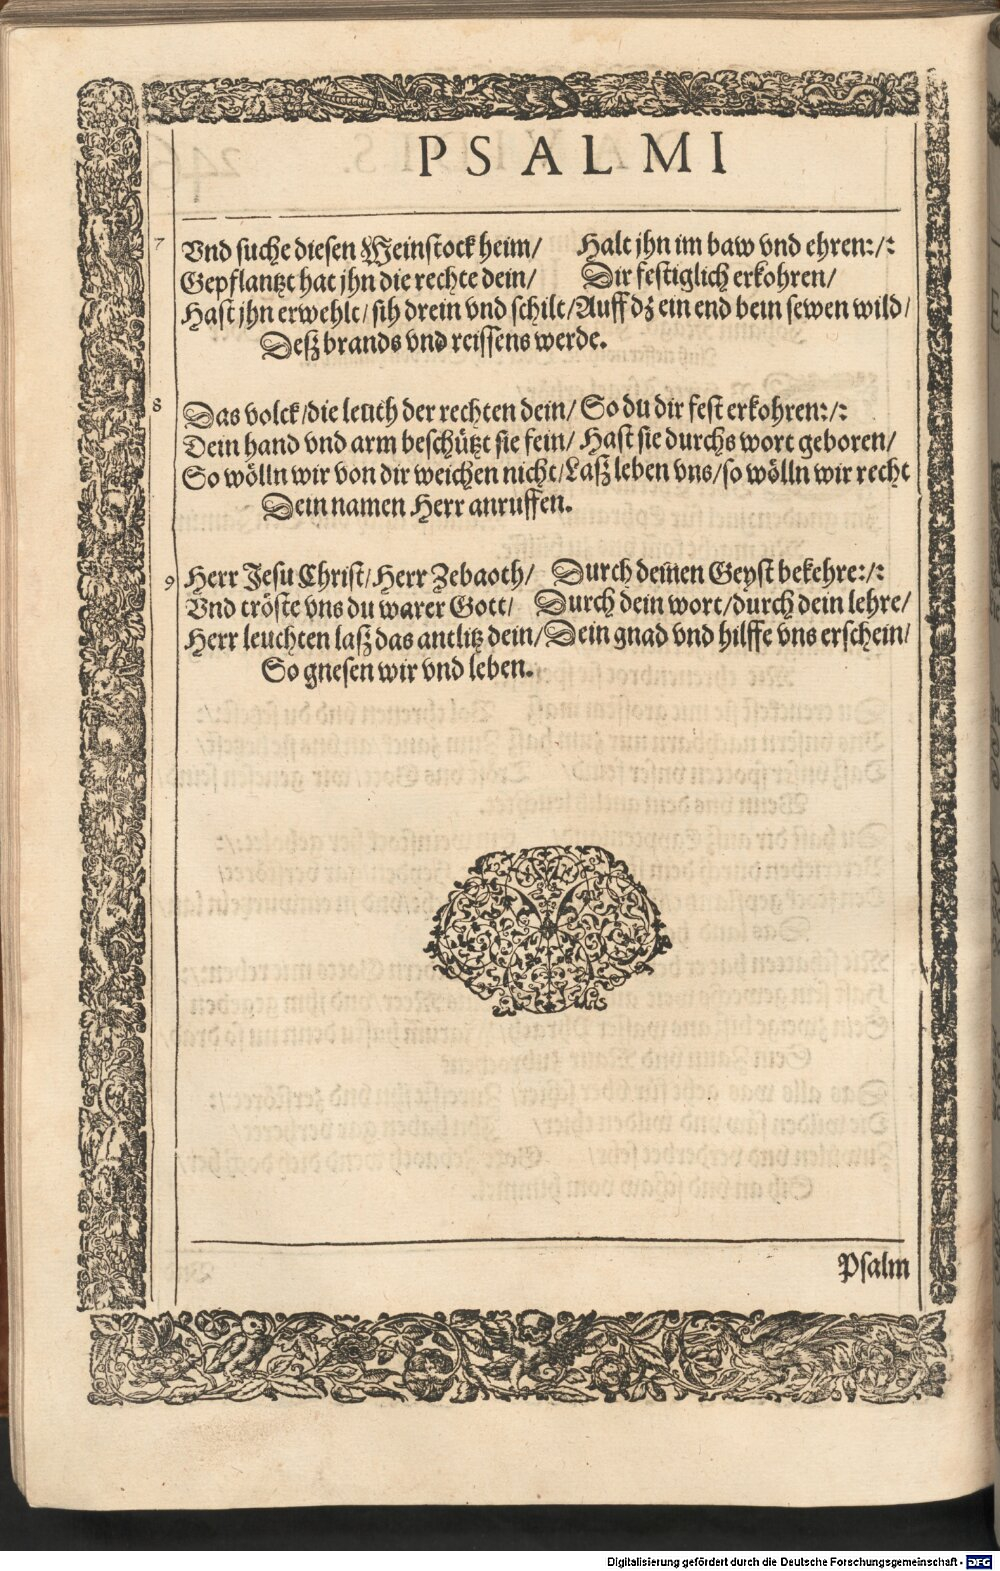 PSALMI
7 Vnd suche diesen Weinstock heim/ Halt jhn im baw vnd ehren:/:
Gepflantzt hat jhn die rechte dein/ Dir festiglich erkohren/
Hast jhn erwehlt/ sih drein vnd schilt/ Auff dz ein end dein sewen wild/
Deß brands vnd reissens werde.
8 Das volck/ die leuth der rechten dein/ So du dir fest erkohren:/:
Dein hand vnd arm beschützt sie fein/ Hast sie durchs wort geboren/
So wölln wir von dir weichen nicht/ Laß leben vns/ so wölln wir recht
Dein namen Herr anruffen.
9 Herr Jesu Christ/ Herr Zebaoth/ Durch deinen Geyst bekehre:/:
Vnd tröste vns du warer Gott/ Durch dein wort/ durch dein lehre/
Herr leuchten laß das antlitz dein/ Dein gnad vnd hilffe vns erschein/
So gnesen wir vnd leben.
Psalm
Digitalisierung gefördert durch die Deutsche Forschungsgemeinschaft - DFG